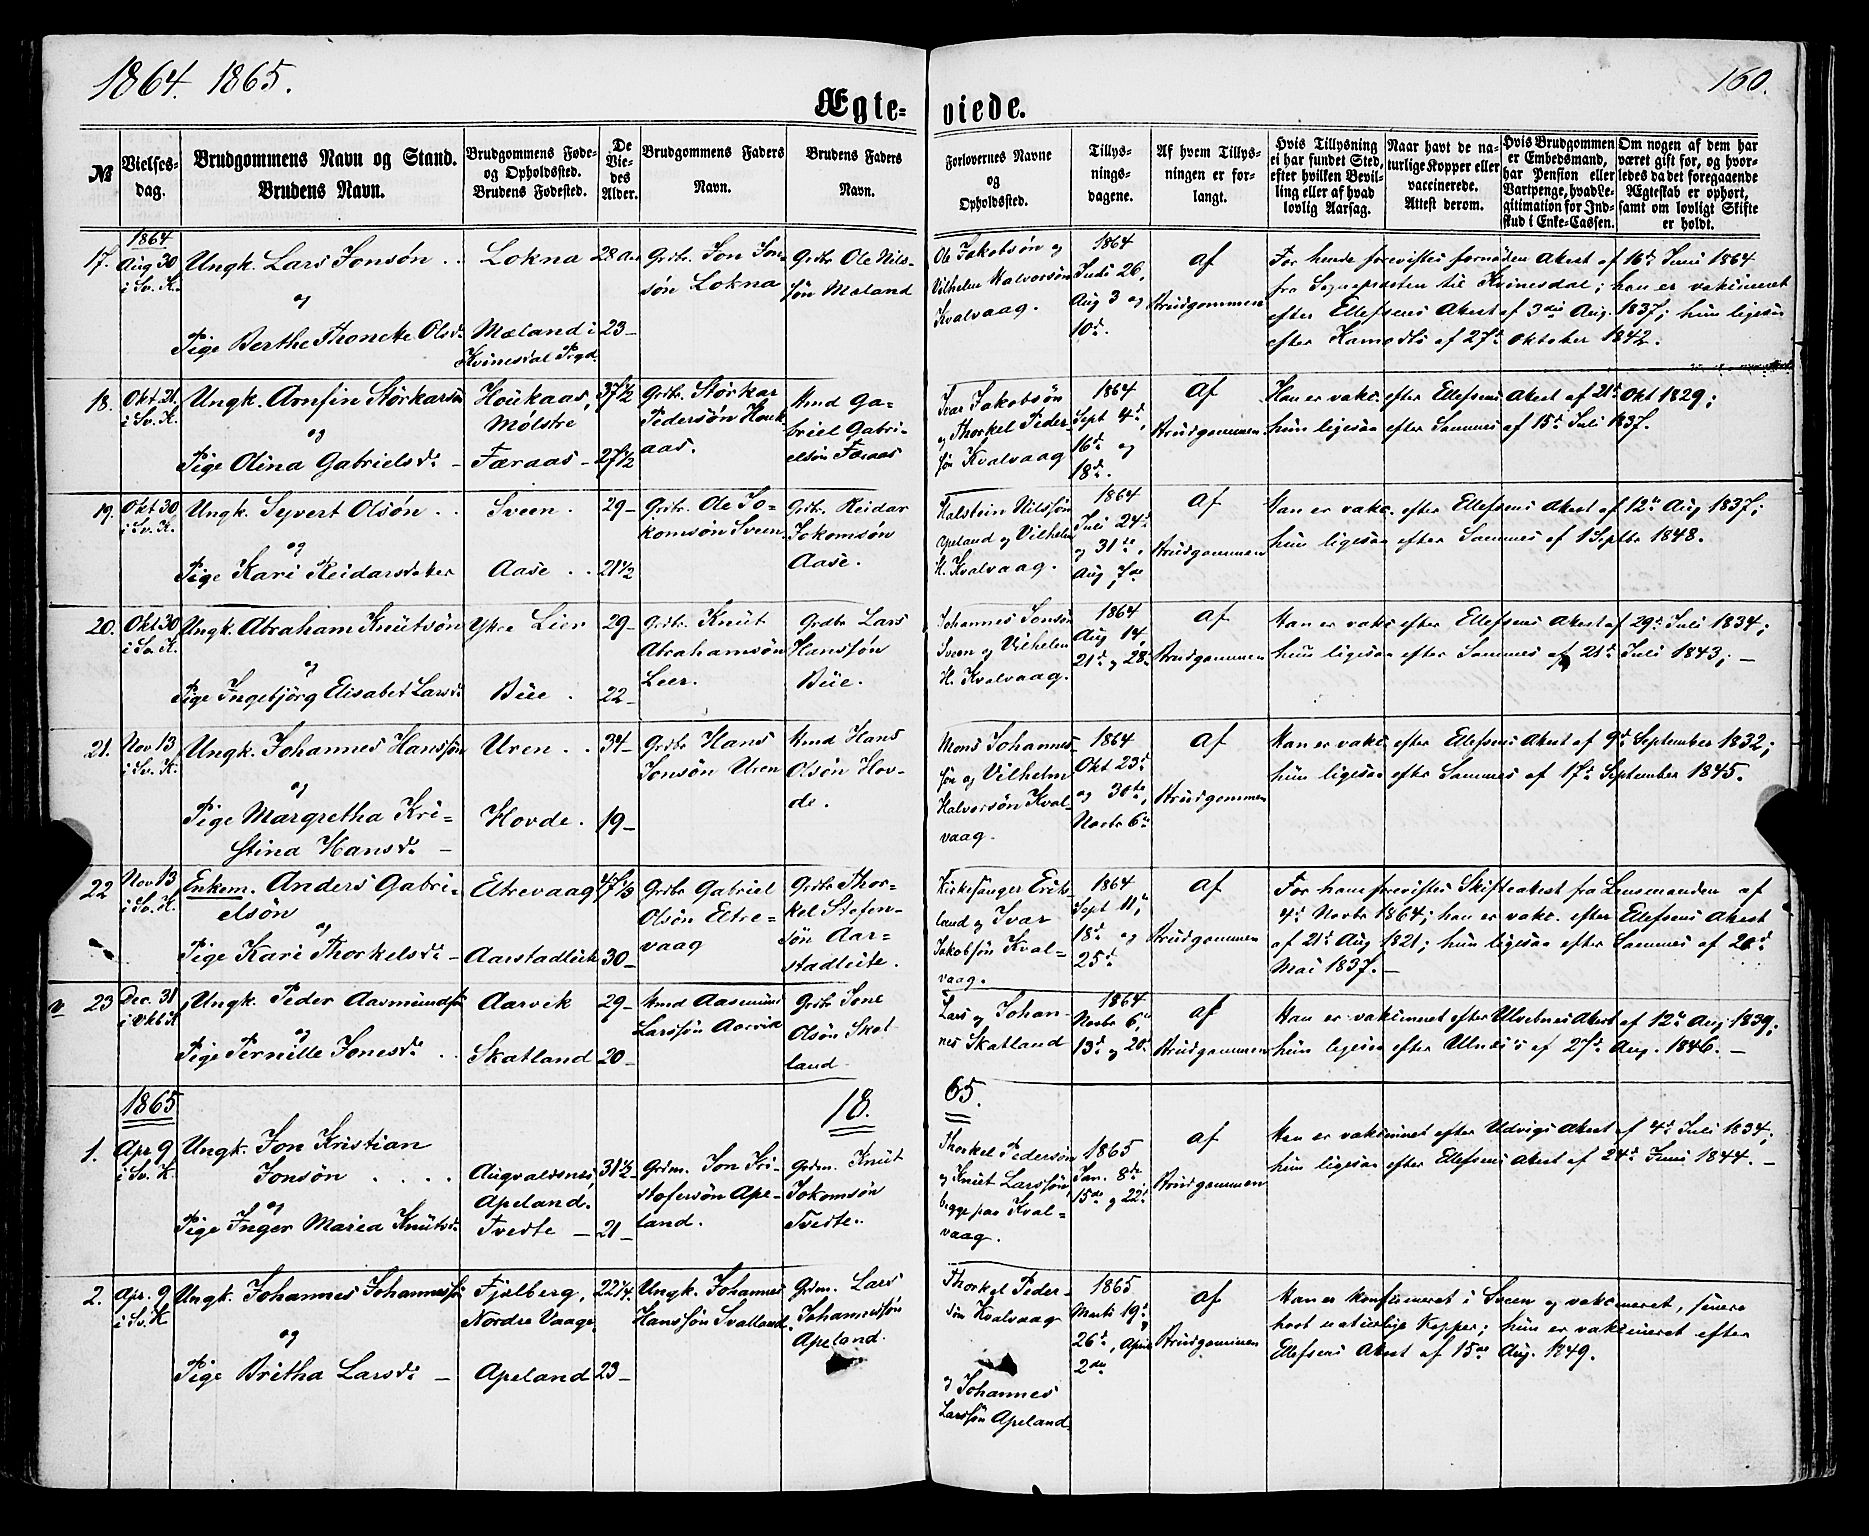 1864. 1865.
160.
Ægte-
viede.
№
Vielses-
dag.
Brudgommens Navn og Stand.
Brudens Navn.
Brudgommens Føde-
og Opholdssted.
Brudens Fødested.
De
Vie-
des
Alder.
Brudgommens Faders
Navn.
Brudens Faders
Navn.
Forlovernes Navne
og
Opholdssted.
Tillys-
nings-
dagene.
Af hvem Tillys-
ningen er for-
langt.
Hvis Tillysning
ei har fundet Sted,
efter hvilken Bevil-
ling eller af hvad
lovlig Aarsag.
Naar havt de na-
turlige Kopper eller
vaccinerede.
Attest derom.
Hvis Brudgommen
er Embedsmand,
har Pension eller
Vartpenge, hvad Le-
gitimation for Ind-
skud i Enke-Cassen.
Om nogen af dem har
været gift før, og hvor-
ledes da det foregaaende
Ægteskab er ophørt,
samt om lovligt Skifte
er holdt.
1864
17.
Aug 30
i Sv. K.
Ungk. Lars Jonsøn . .
og
Pige Berthe Thoneke Olsdr
Lokna
Mæland i
Kvinesdal Prgd
28 Aar
23 -
Grdbr. Jon Jon-
søn Lokna
Grdbr Ole Nils-
søn Mæland
Ole Jakobsøn og
Vilhelm Halvorsøn
Kvalvaag.
1864
Juli 26,
Aug 3 og
10d.
af
Brudgommen
For hende forevistes fornøden Atest af 16d Juni 1864
fra Sognepresten til Kvinesdal; han er vaksineret
efter Ellefsens Atest af 3die Aug. 1837; hun ligesaa
efter Kamodts af 27d Oktober 1842.
18.
Okt 21.
i Sv. K.
Ungk. Arnfin Størkarsøn
og
Pige Olina Gabrielsdr -
Houkaas,
Mølstre
Færaas -
37 1/2
27 1/2
Grdbr. Størkar
Pedersøn Houk-
aas.
Hmd Ga-
briel Gabri-
elsøn Færaas
Ivar Jakobsøn
og Thorkel Peder-
søn Kvalvaag
1864
Sept 4d,
16d og
18d.
af
Brudgommen
Han er vaks. efter Ellefsens Atest af 21d Okt 1829;
hun ligesaa efter Sammes af 15d Juli 1837.
19.
Okt 30
i Sv. K.
Ungk. Syvert Olsøn . .
og
Pige Kari Reidarsdatter
Sveen .
Aase . .
29 -
21 1/2
Grdbr. Ole Jo-
komsøn Sveen
Grdbr. Reidar
Jokomsøn
Aase.
Halstein Nilssøn
Apeland og Vilhelm
H. Kvalvaag.
1864
Juli 24d
og 31te,
Aug 7de
af
Brudgommen
Han er vaks. efter Ellefsens Atest af 12te Aug 1837;
hun ligesaa efter Sammes af 1 Septbr 1848.
20.
Okt 30
i Sv. K.
Ungk. Abraham Knutsøn
og
Pige Ingebjörg Elisabet Larsdr
Ytre Lien
Büe .
29 -
22 -
Grdbr. Knut
Abrahamsøn
Leer.
Grdbr Lars
Hanssøn
Büe.
Johannes Jonsøn
Sveen og Vilhelm
H. Kvalvaag.
1864
Aug 14,
21d og 28d
af
Brudgommen
Han er vaks efter Ellefsens Atest af 29d Juli 1834;
hun ligesaa efter Sammes af 21d Juli 1843; -
21.
Nov 13
i Sv. K.
Ungk. Johannes Hanssøn
og
Pige Margretha Kri-
stina Hansdr -
Uren . .
Hovde .
34 -
19 -
Grdbr Hans
Jonsøn Uren
Hmd Hans
Olsøn Hov-
de.
Mons Johannes-
søn og Vilhelm
Halvorsøn Kval-
vaag.
1864
Okt 23d
og 30te,
Novbr 6te
af
Brudgommen
Han er vaks efter Ellefsens Atest af 9d September 1832;
hun ligesaa efter Sammes af 17d September 1845.
22
Nov 13
i Sv. K.
Enkem. Anders Gabri-
elsøn
og
Pige Kari Thorkelsdr -
Eltrevaag
Aarstadleite
30 -
Grdbr Gabriel
Olsøn Eltre-
vaag
Grdbr Thor-
kel Stefen-
søn Aar-
stadleite.
Kirkesanger Erits-
land og Ivar
Jakobsøn Kval-
vaag.
1864
Sept 11te,
18d og
25d
af
Brudgommen
For ham forevistes Skifteatest fra Lensmanden af
4d Novbr 1864; han er vaks. efter Ellefsens Atest
af 21d Aug 1821; hun ligesaa efter Sammes af 20d
Mai 1837. -
23
Dec. 31
Ungk. Peder Aasmundsøn
og
Pige Pernille Jonesdr . .
Aarvik
Skatland
29 -
20 -
Hmd Aasmund
Larssøn Aarvik
Grdbr Jone
Olsøn Skat
land
Lars og Johan-
nes Skatland
1864
Novbr 6te,
13d og 20d.
af
Brudgommen
Han er vaksineret efter Ulvetnes Atest af 12te Aug 1839;
hun ligesaa efter Ulnes's af 27d Aug. 1846. -
1865
18.
65.
1.
Apr 9
i Sv. K.
Ungk. Jon Kristian
Jonsøn . . . .
og
Pige Inger Maria Knutsdr
Augvaldsnes,
Apeland.
Tvedte -
31 1/2 -
21 -
Grdm. Jon Kri-
stofersøn Ape-
land.
Grdm. Knut
Jokomsøn
Tvedte.
Thorkel Pedersøn
og Knut Larssøn,
begge paa Kval-
vaag.
1865
Jan. 8de,
15de og 22d.
af
Brudgommen
Han er vaksineret efter Udvigs Atest af 4d Juli 1834;
hun ligesaa efter Ellefsens Atest af 24d Juni 1844. -
2.
Apr. 9
i Sv. K
Ungk. Johannes Johannessøn
og
Pige Britha Larsdr -
Fjelberg,
Nordre Vaage.
Apeland
22 1/4.
23 -
Ungk. Johannes
Hanssøn Svalland.
Grdm. Lars
Johannessøn
Apeland.
Thorkel Peder-
søn Kvalvaag
og Johannes
Larssøn Apeland.
1865
Marts 19d,
26d, April
2den
af
Brudgommen
Han er konfirmeret i Sveen og vaksineret, senere
havt naturlige Kopper; hun er vaksineret efter
Ellefsens Atest af 15de Aug. 1849.